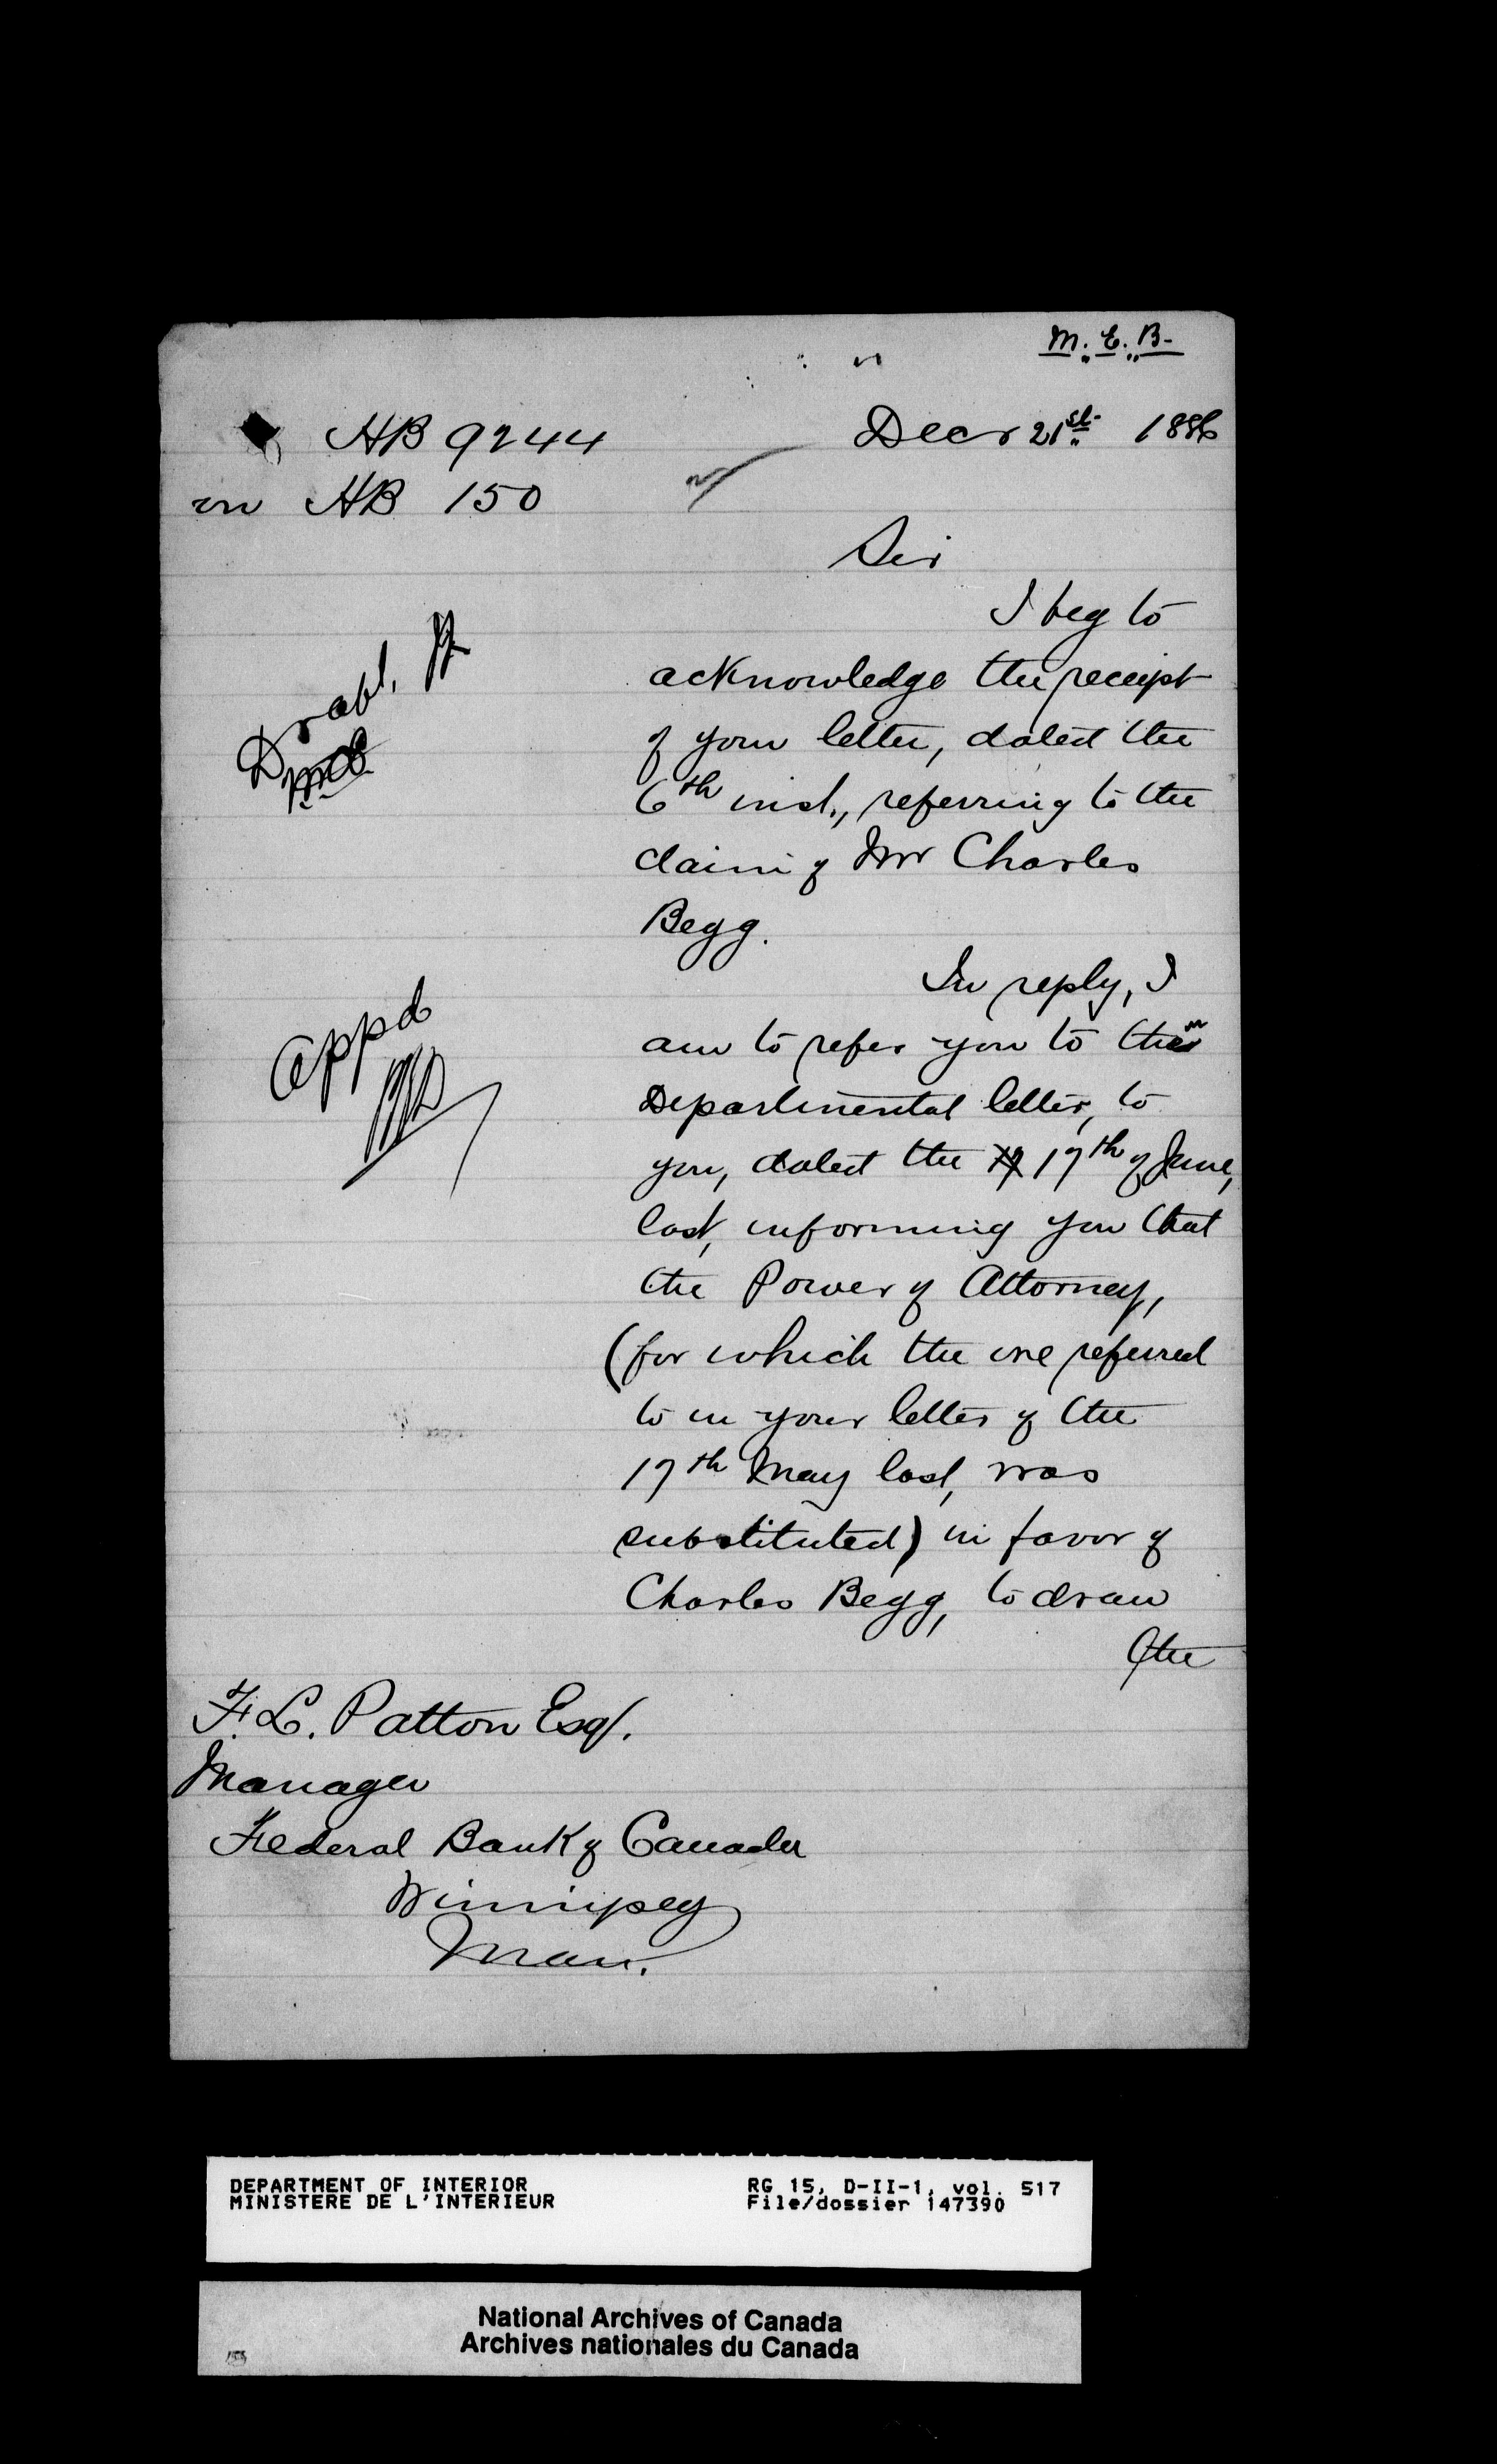 M. E. B.
HB 9244 Decr 21st 1886
on HB 150
Sir
I beg to
acknowledge the receipt
of your letter, dated the
6th inst., referring to the
claim of Mr Charles
Begg.
In reply, I
am to refer you to the
Departmental letter, to
you, dated the 17th of June,
last, informing you that
the Power of Attorney,
(for which the one referred
to in your letter of the
17th May last, was
substituted) in favor of
Charles Begg, to draw
the
Appd
F. L. Patton Esq.
Manager
Federal Bank of Canada
Winnipeg
Man.
DEPARTMENT OF INTERIOR RG 15, D-II-1, vol. 517
MINISTERE DE L'INTERIEUR File/dossier 147390
National Archives of Canada
Archives nationales du Canada